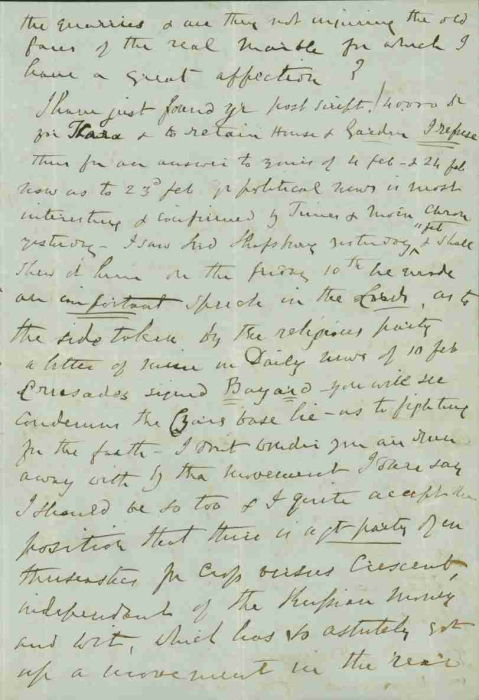 the quarries & are they not injuring the old
faces of the real Marble for which I
have a great affection?
I have just found yr post script!
for & to retain House & Garden I
then for an answer to yours of 4 feb - & 24 feb
now as to 23d feb yr political news is most
interesting & confirmed by Times & Morn Chron
yesterday - I saw Lord Shaftsbury yesterday, & shall
shew it him on the friday 10th he made
an important speech in the Lords, as to
the side taken by the religious party
a letter of mine in Daily news of 10 feb
Crusades signed Bayard - you will see
condemns the Czars base lie - as to fighting
for the faith - I don't wonder you are
away with by the movement I dare say
I should be so too & I quite accept the
position that there is a gt party of en
thusiasts for Cross versus Crescent,
independant of the Russian money
and , which has so astutely got
up a movement in the rear